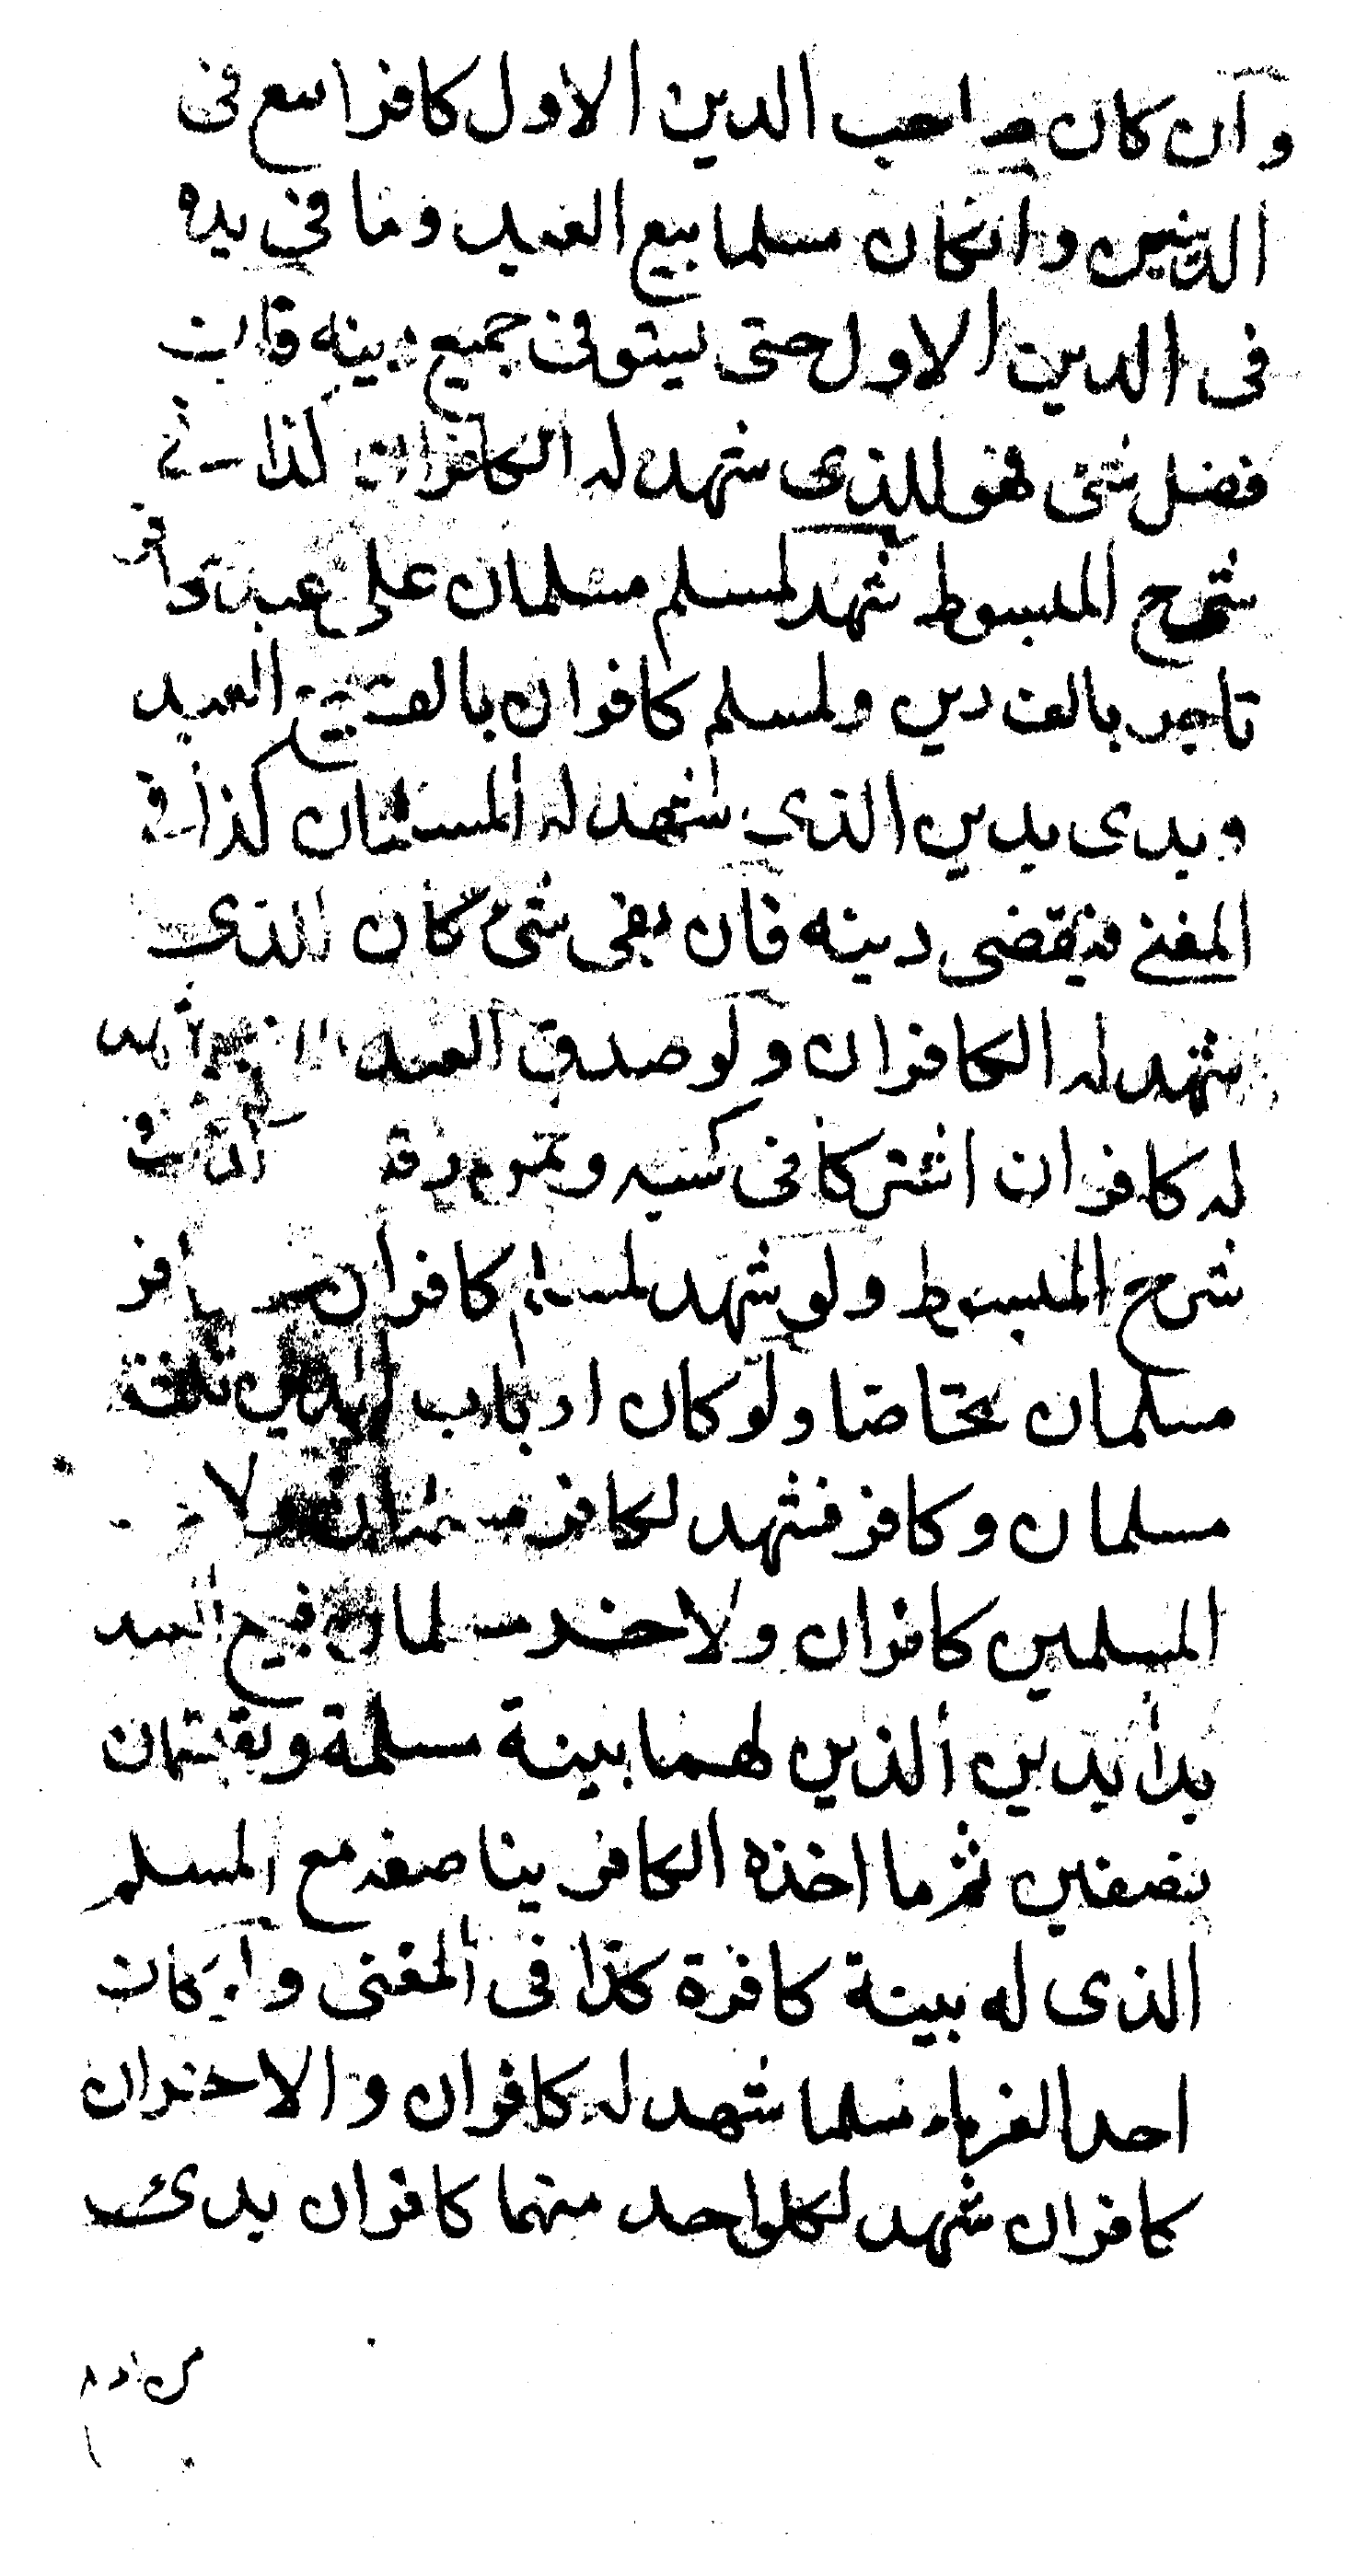 وان كان صاحب الدين الاول كافرا بيع في
الدينين وان كان مسلما بيع العبد وما في يده
في الدين الاول حتى يستوفي جميع دينه فان
فضل شئ فهو للذي شهد له الكافران كذا في
شرح المبسوط شهد لمسلم مسلمان على عبد كافر
تاجر بالف دين ولمسلم كافران بالف بيع العبد
وبدى بدين الذي شهد له المسلمان كذا في
المغني فيقضى دينه فان بقى شئ كان للذي
شهد له الكافران ولو صدق العبد الذي شهد
له كافران اشتركا في كسبه وثمن رقبته كذا في
شرح المبسوط ولو شهد لمسلم كافران ولكافر
مسلمان تحاصا ولو كان ارباب الدين ثلاثة
مسلمان وكافر فشهد لكافر مسلمان ولاحد
المسلمين كافران ولاخر مسلمان فبيع العبد
بدأ بدين الذين لهما بينة مسلمة ويقتسمان
نصفين ثم ما اخذه الكافر يناصفه مع المسلم
الذي له بينة كافرة كذا في المغني وان كان
احد الغرماء مسلما شهد له كافران والاخران
كافران شهد لكل واحد منهما كافران بدئ